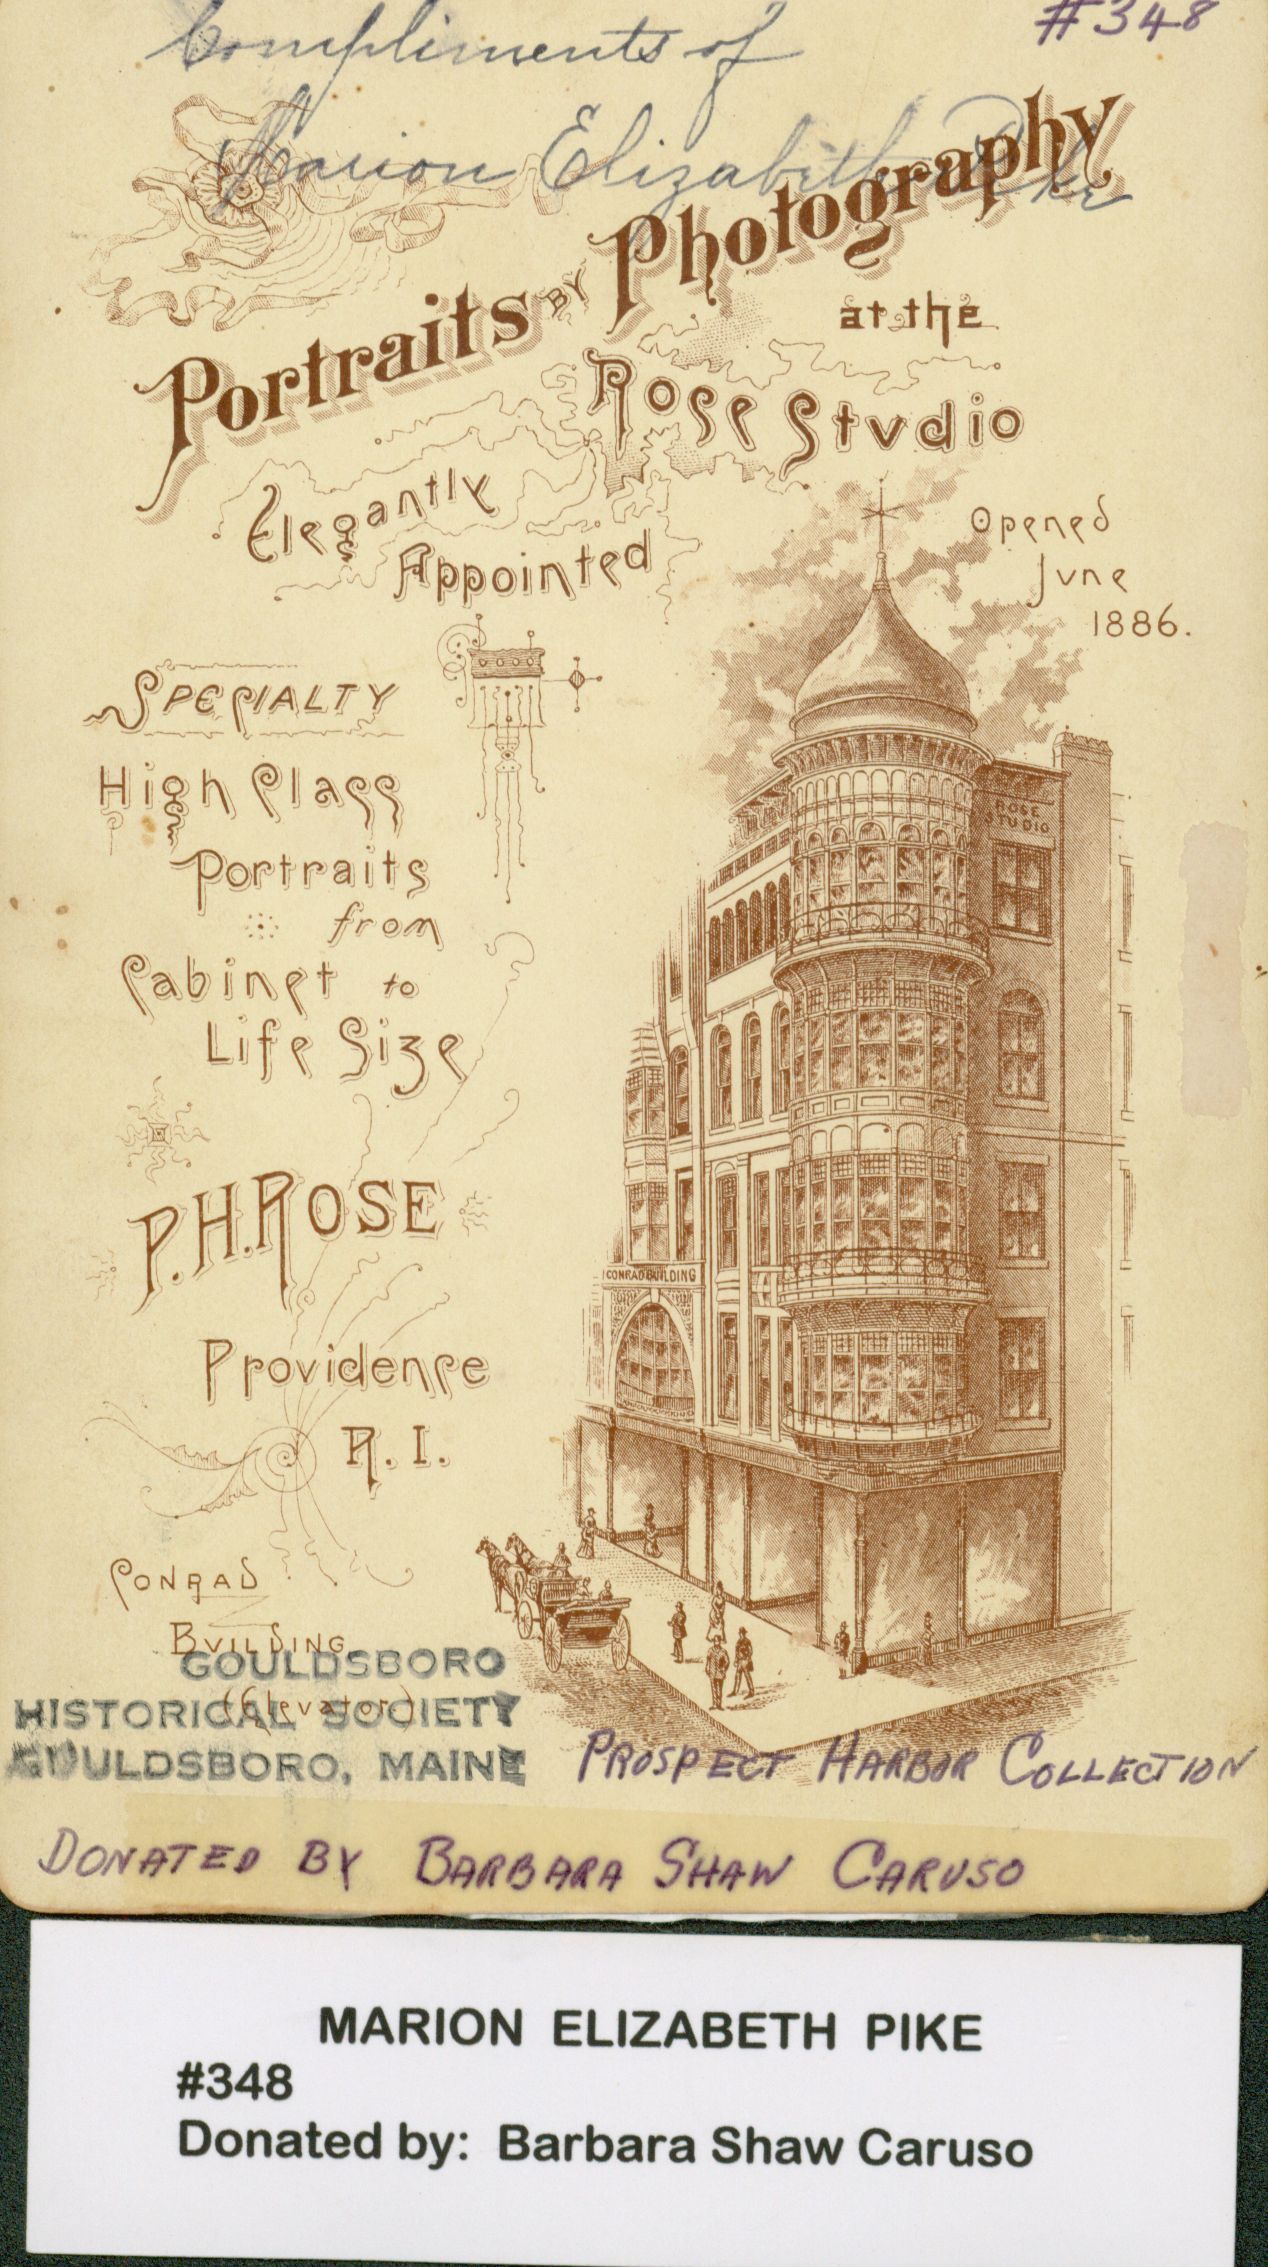 Compliments of
#348
Marion Elizabeth Pike
Portraits BY Photography
at the
Rose Studio
Elegantly
Appointed
Opened
June
1886.
SPECIALTY
High Class
Portraits
from
Cabinet to
Life Size
ROSE
STUDIO
P.H. ROSE
CONRAD BUILDING
Providence
R. I.
CONRAD
BUILDING
(Elevator)
GOULDSBORO
HISTORICAL SOCIETY
GOULDSBORO, MAINE
PROSPECT HARBOR COLLECTION
DONATED BY BARBARA SHAW CARUSO
MARION ELIZABETH PIKE
#348
Donated by: Barbara Shaw Caruso